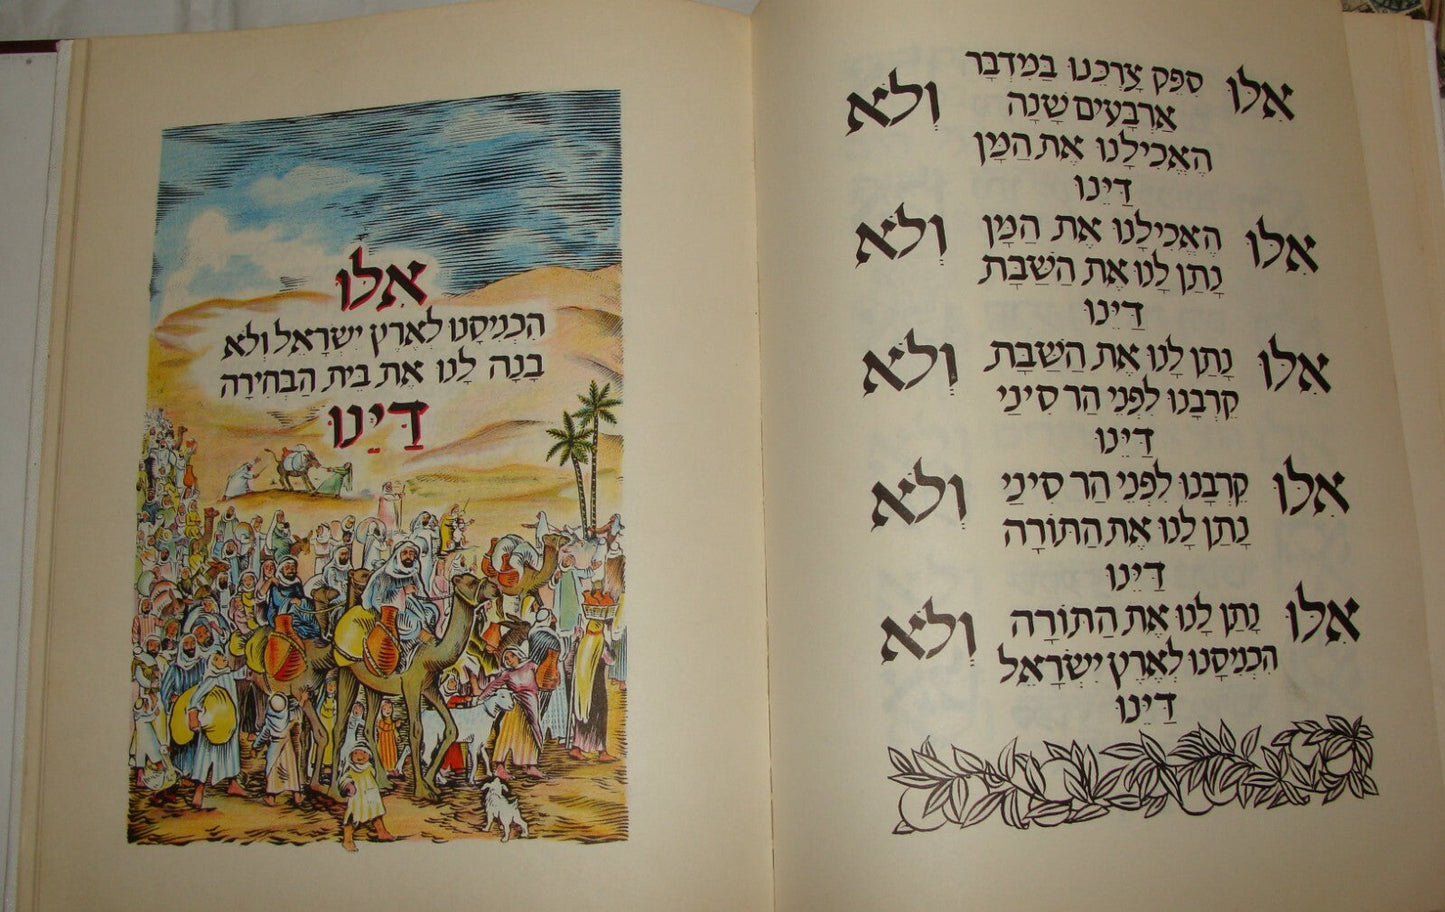 אִלּוּ סִפֵּק צָרְכֵּנוּ בַּמִּדְבָּר
אַרְבָּעִים שָׁנָה וְלֹא
הֶאֱכִילָנוּ אֶת הַמָּן
דַּיֵּנוּ
אִלּוּ הֶאֱכִילָנוּ אֶת הַמָּן וְלֹא
נָתַן לָנוּ אֶת הַשַּׁבָּת
דַּיֵּנוּ
אִלּוּ נָתַן לָנוּ אֶת הַשַּׁבָּת וְלֹא
קֵרְבָנוּ לִפְנֵי הַר סִינַי
דַּיֵּנוּ
אִלּוּ קֵרְבָנוּ לִפְנֵי הַר סִינַי וְלֹא
נָתַן לָנוּ אֶת הַתּוֹרָה
דַּיֵּנוּ
אִלּוּ נָתַן לָנוּ אֶת הַתּוֹרָה וְלֹא
הִכְנִיסָנוּ לְאֶרֶץ יִשְׂרָאֵל
דַּיֵּנוּ
אִלּוּ
הִכְנִיסָנוּ לְאֶרֶץ יִשְׂרָאֵל וְלֹא
בָנָה לָנוּ אֶת בֵּית הַבְּחִירָה
דַּיֵּנוּ